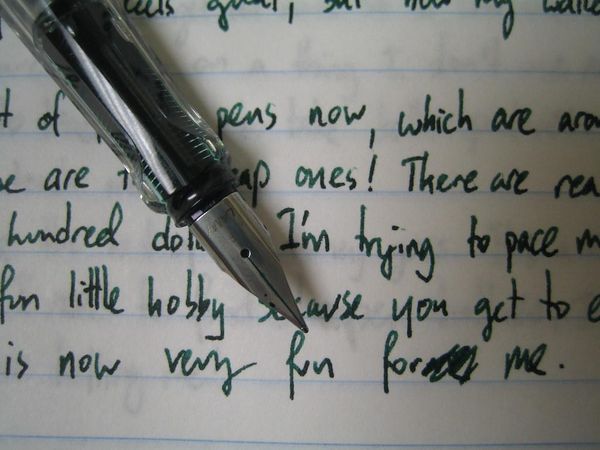 feels great, but now my
t of pens now, which are
are ones! There are
hundred I'm trying to pace
fun little hobby because you get to
is now very fun for me.